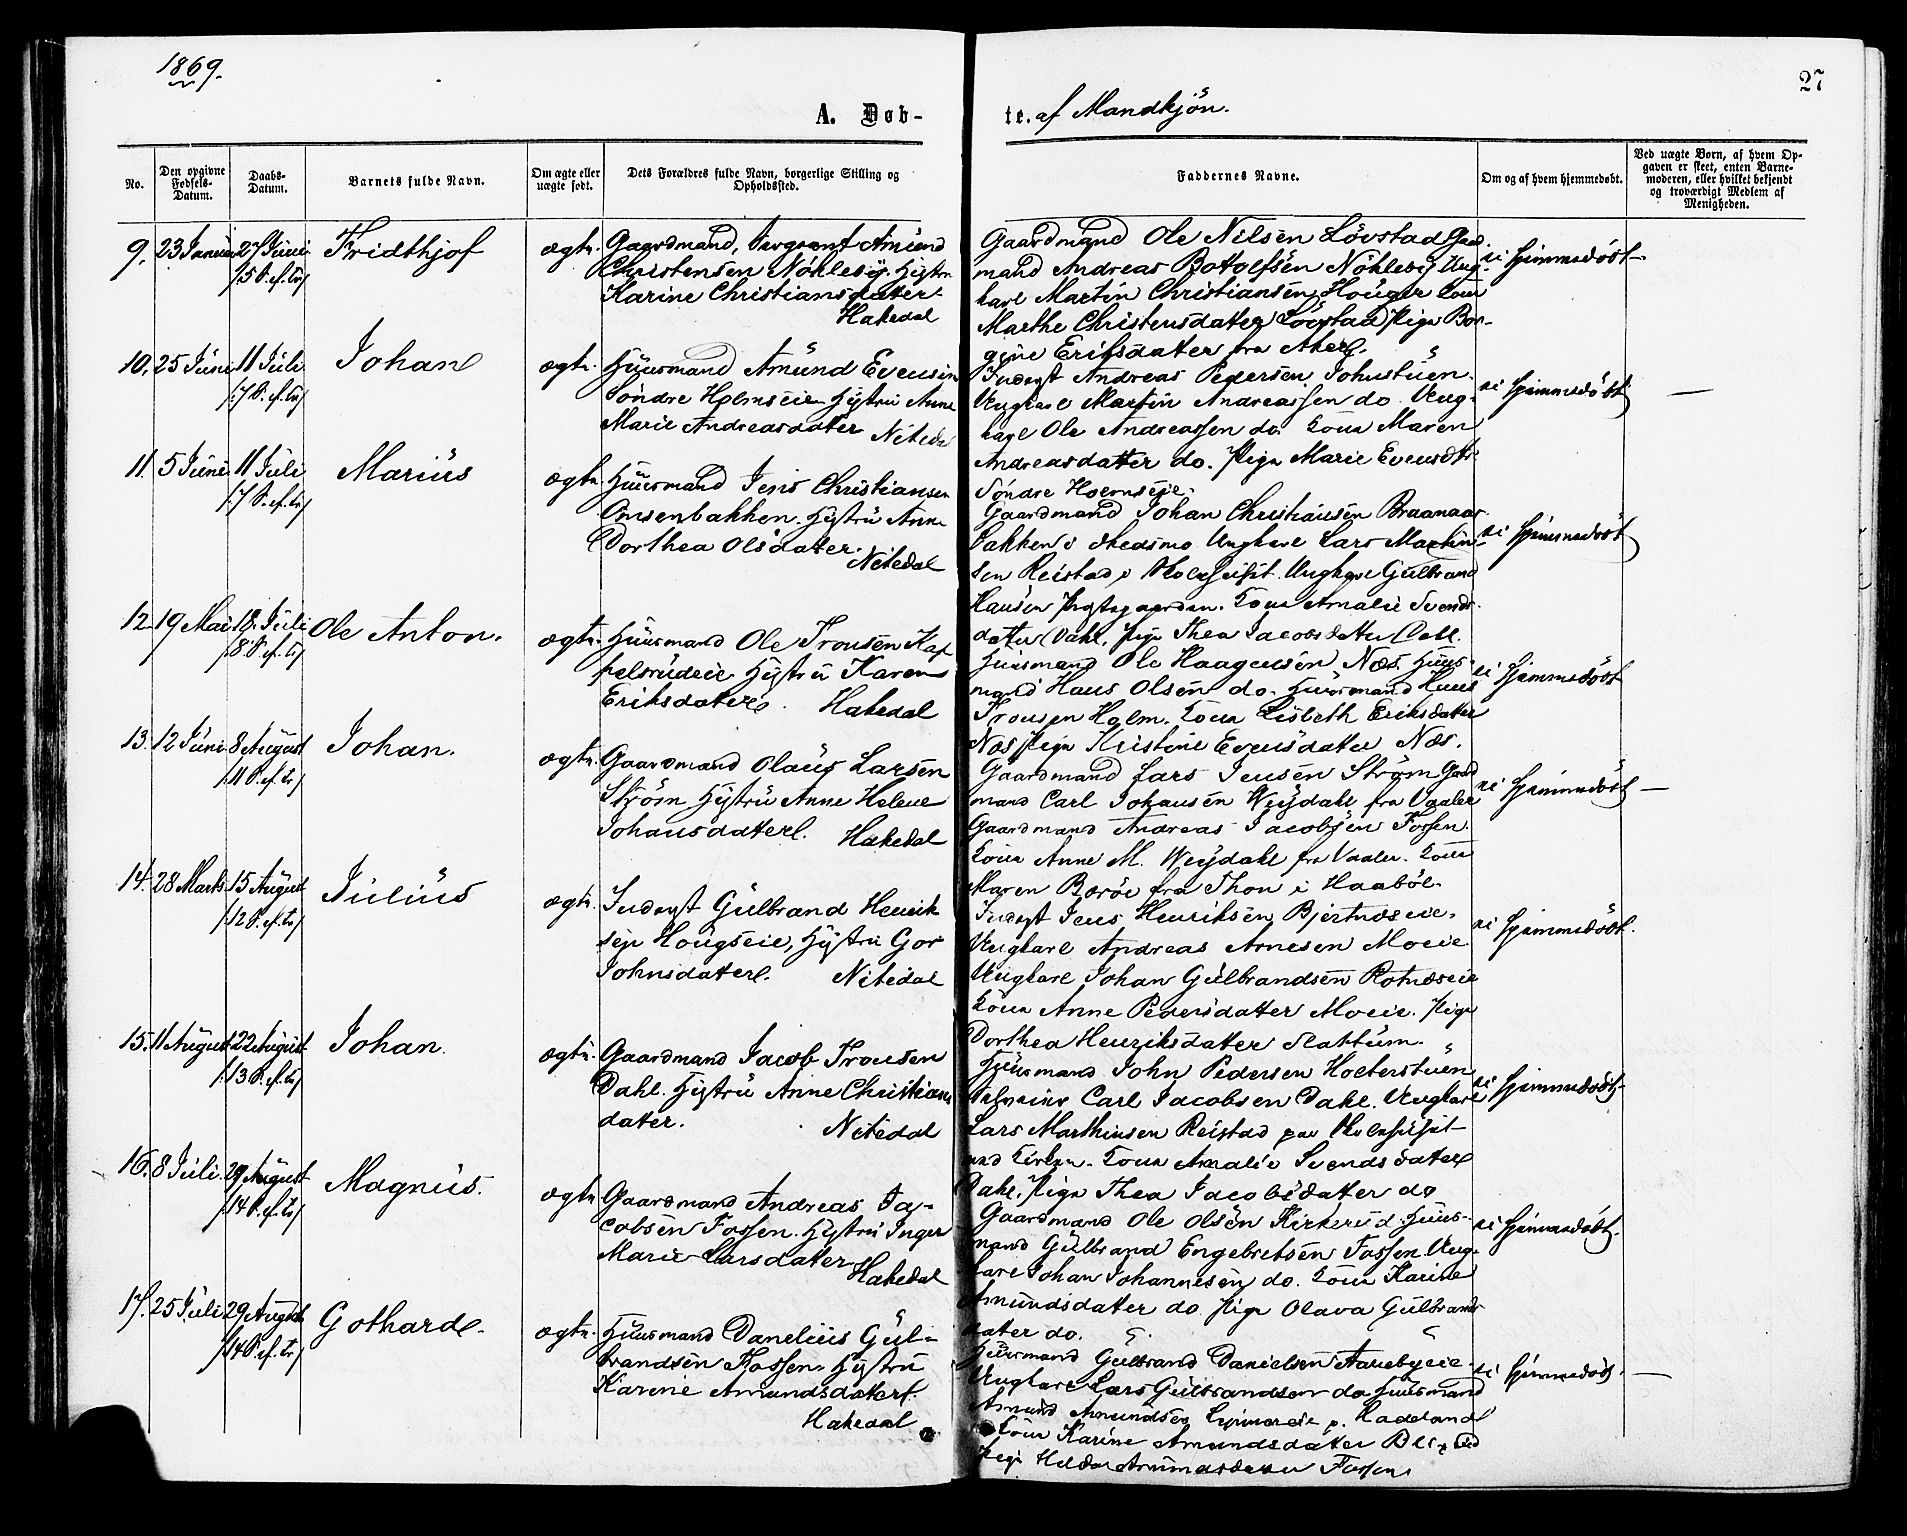 1869.
27
A. Døb-
te. af Mandkjön.
No.
Den opgivne Fødsels-Datum.
Daabs-Datum.
Barnets fulde Navn.
Om ægte eller uægte født.
Dets Forældres fulde Navn, borgerlige Stilling og Opholdssted.
Faddernes Navne.
Om og af hvem hjemmedøbt.
Ved uægte Børn, af hvem Op-
gaven er skeet, enten Barne-
moderen, eller hvilket bekjendt
og troværdigt Medlem af
Menigheden.
9. 23 Januar 27 Juni Fridthjof ægte. Gaardmand, Amund
/5 S. ef. Tr/
Christensen Nöhleby. Hystru
Karine Christiansdatter
Hakedal
Gaardmand Ole Nilsen Lövstad Gaard
mand Andreas Botolfsen Nöhleby Ung-
karl Martin Christiansen Houger Kona
Marthe Christensdatter Lövstad Pige Bor-
gine Eriksdatter fra Aker.
ei hjemmedöbt
10. 25 Juni 11 Juli Johan ægte. Huusmand Amund Evensen
/7 S. ef. Tr/
Söndre Holmseie Hystru Anne
Marie Andreasdatter Nitedal
Inderst Andreas Pedersen Johnstuen
Ungkarl Martin Andreassen do. Ung-
karl Ole Andreassen do. Kona Maren
Andreasdatter do. Pige Marie Evensdtr
Söndre
ei hjemmedöbt —
11. 5 Juni 11 Juli Marius ægte Huusmand Jens Christiansen
/7 S. ef. Tr/
Hystru Anne
Dorthea Olsdatter.
Nitedal
Gaardmand Johan Christiansen
bakken i Skedsmo Ungkarl Lars Martin-
sen Reistad Ungkarl Gulbrand
Hansen Kona Amalie Svends-
datter Dahl. Pige Thea Jacobsdatter Dahl.
ei hjemmedöbt
12. 19 Mai 18. Juli Ole Anton. ægte. Huusmand Ole Tronsen Kap
/8 S. ef. Tr/
pelsrudeie Hystru Karen
Eriksdatter. Hakedal
Huusmand Ole Haagensen Næs. Huus-
mand Hans Olsen do. Huusmand Hans
Tronsen Holm. Kona Lisbeth Eriksdatter
Næs Pige Kristine Evensdatter Næs.
ei hjemmedöbt
13. 12 Juni 8 August Johan. ægte. Gaardmand Olaus Larsen
/11 S. ef. Tr/
Ström Hystru Anne Helene
Johansdatter. Hakedal
Gaardmand Lars Jensen Ström Gaard
mand Carl Johansen Weydahl fra Vaaler
Gaardmand Andreas Jacobsen Fossen.
Kona Anne M. Weydahl fra Vaaler. Kona
Maren fra Thon i Haaböl.
ei hjemmedöbt —
14. 28 Marts 15 August Julius ægte. Inderst Gulbrand Henrik
/12 S. ef. Tr/
sen Hougseie, Hystru Gor
Johnsdatter. Nitedal
Inderst Jens Henriksen Bjertnæseie.
Ungkarl Andreas Arnesen Moeie
Ungkarl Johan Gulbrandsen Rotnæseie
Kona Anne Pedersdatter Moeie. Pige
Dorthea Henriksdatter Slattum.
ei hjemmedöbt.
15. 11 August 22 August Johan. ægte. Gaardmand Jacob Tronsen
/13 S. ef. Tr/
Dahl. Hystru Anne Christians
datter. Nitedal
Huusmand John Pedersen
Carl Jacobsen Dahl. Ungkarl
Lars Marthinsen Reistad
Kona Amalie Svendsdatter
Dahl. Pige Thea Jacobsdatter do
ei hjemmedöbt
16. 8 Juli. 29 August Magnus. ægte Gaardmand Andreas Ja-
/14 S. ef. Tr/
cobsen Fossen. Hystru Inger
Marie Larsdatter
Hakedal
Gaardmand Ole Olsen Kirkerud. Huus-
mand Gulbrand Engebretsen Fossen. Ung-
karl Johan Johannesen do. Kona Karine
Amundsdatter do. Pige Olava Gulbrands
datter do.
ei hjemmedöbt.
17. 25 Juli 29 August Gothard. ægte. Huusmand Danelius Gul-
/14 S. ef. Tr/
brandsen Fossen. Hystru
Karine Amundsdatter.
Hakedal
Huusmand Gulbrand Danielsen
Ungkarl Lars Gulbrandsen do Huusmand
Amund Amundsen p. Hadeland
Kona Karine Amundsdatter
Pige Fossen
ei hjemmedöbt. —